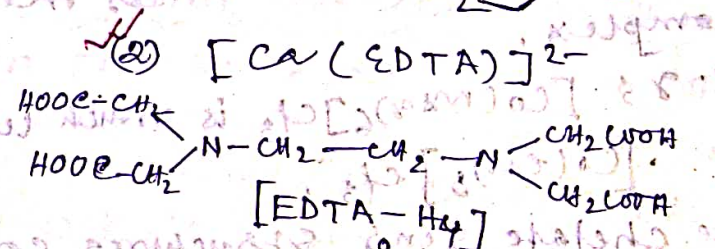 (2) [Ca(EDTA)]2-
HOOC-CH2
HOOC-CH2 N-CH2-CH2-N CH2COOH
CH2COOH
[EDTA-H4]